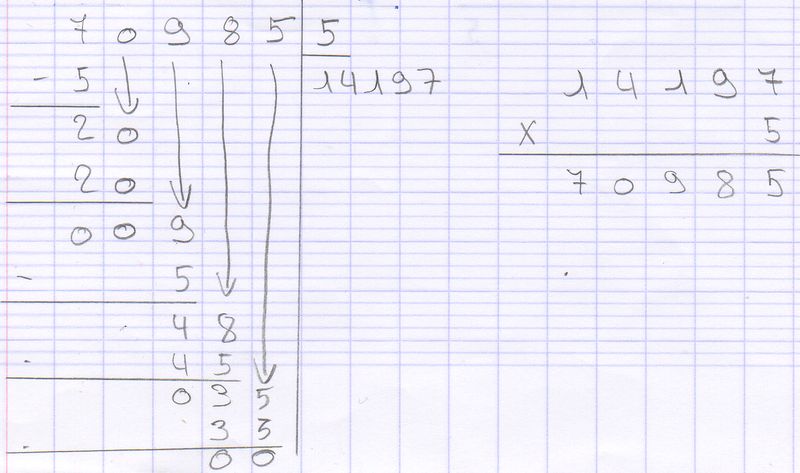 7 0 9 8 5 5
- 5
14197
2 0
2 0
0 0 9
- 5
4 8
- 4 5
0 3 5
- 3 5
0 0
1 4 1 9 7
x 5
7 0 9 8 5